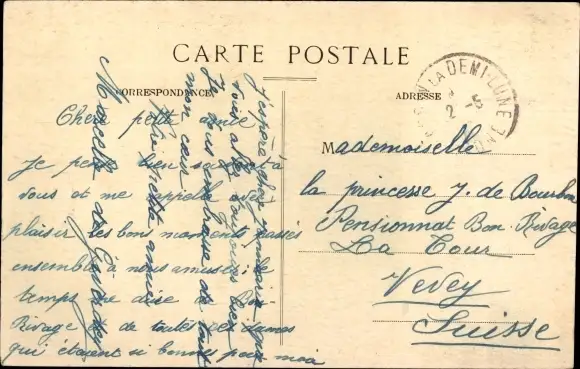 CARTE POSTALE
CORRESPONDANCE
ADRESSE
LA DEMI-LUNE
Chère petite amie
Je pense bien souvent à
vous et me rappelle avec
plaisir les bons moments passés
ensemble à nous amuser;
temps me dire à Bon
Rivage de toutes ces dames
qui étaient si bonnes pour moi
J'espère chère
vous allez toujours bien
Je vous embrasse de tout
mon cœur
Votre petite amie
Marcelle de
Mademoiselle
la princesse J. de Bourbon
Pensionnat Bon Rivage
La Tour
Vevey
Suisse